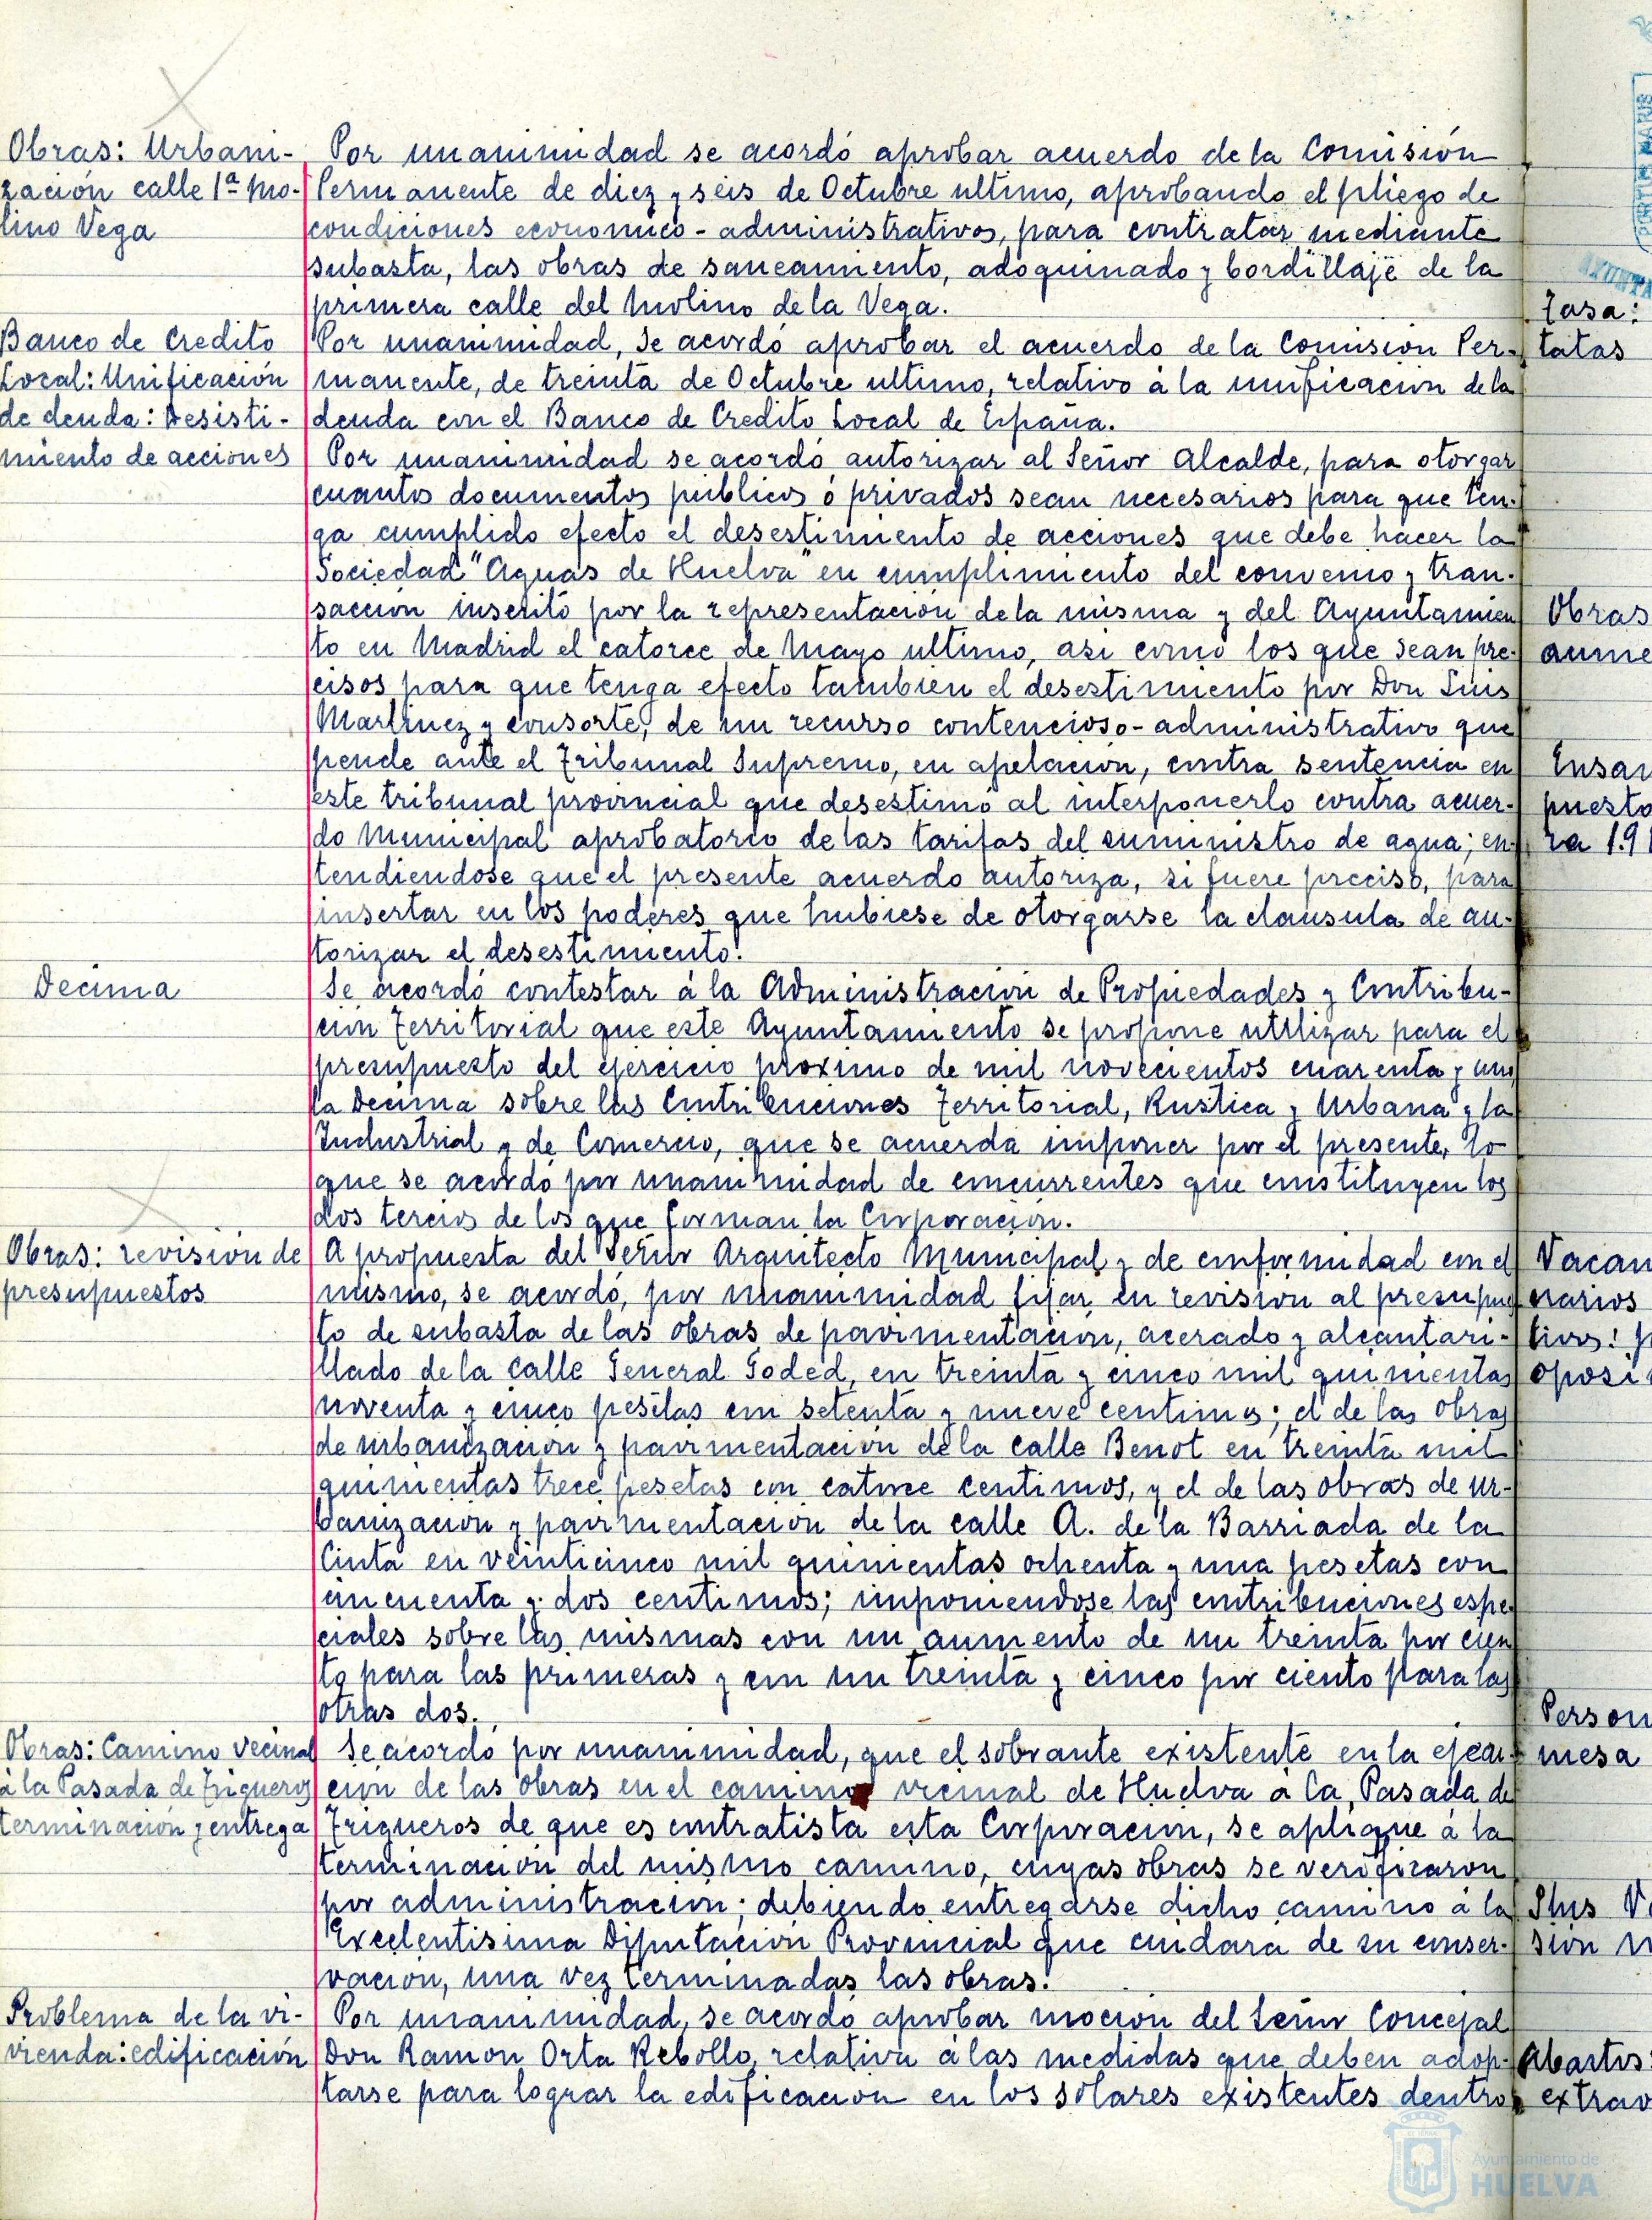 Obras: Urbani-
zación calle 1ª Mo-
lino Vega
Por unanimidad se acordó aprobar acuerdo de la Comisión
Permanente de diez y seis de Octubre ultimo, aprobando el pliego de
condiciones economico-administrativas, para contratar mediante
subasta, las obras de saneamiento, adoquinado y bordillaje de la
primera calle del Molino de la Vega.
Banco de Credito
Local: Unificación
de deuda: Desisti-
miento de acciones
Por unanimidad, se acordó aprobar el acuerdo de la Comisión Per-
manente, de treinta de Octubre ultimo, relativo á la unificación de la
deuda con el Banco de Credito Local de España.
Por unanimidad se acordó autorizar al Señor Alcalde, para otorgar
cuantos documentos publicos ó privados sean necesarios para que ten-
ga cumplido efecto el desestimiento de acciones que debe hacer la
Sociedad "Aguas de Huelva" en cumplimiento del convenio y tran-
sacción inscrito por la representación de la misma y del Ayuntamien
to en Madrid el catorce de Mayo ultimo, asi como los que sean pre-
cisos para que tenga efecto tambien el desestimiento por Don Luis
Martinez y consorte, de un recurso contencioso-administrativo que
pende ante el Tribunal Supremo, en apelación, contra sentencia en
este tribunal provincial que desestimó al interponerlo contra acuer-
do Municipal aprobatorio de las tarifas del suministro de agua; en-
tendiendose que el presente acuerdo autoriza, si fuere preciso, para
insertar en los poderes que hubiese de otorgarse la clausula de au-
torizar el desestimiento.
Decima
Se acordó contestar á la Administración de Propiedades y Contribu-
ción Territorial que este Ayuntamiento se propone utilizar para el
presupuesto del ejercicio proximo de mil novecientos cuarenta y uno,
la Decima sobre las Contribuciones Territorial, Rustica y Urbana y la
Industrial y de Comercio, que se acuerda imponer por el presente, lo
que se acordó por unanimidad de concurrentes que constituyen los
dos tercios de los que forman la Corporación.
Obras: revisión de
presupuestos
A propuesta del Señor Arquitecto Municipal y de conformidad con el
mismo, se acordó, por unanimidad fijar en revisión al presupues
to de subasta de las obras de pavimentación, acerado y alcantari-
llado de la calle General Goded, en treinta y cinco mil quinientas
noventa y cinco pesetas con setenta y nueve centimos; el de las obras
de urbanización y pavimentación de la calle Benot en treinta mil
quinientas trece pesetas con catorce centimos, y el de las obras de ur-
banización y pavimentación de la calle A. de la Barriada de la
Cinta en veinticinco mil quinientas ochenta y una pesetas con
cincuenta y dos centimos; imponiendose las contribuciones espe-
ciales sobre las mismas con un aumento de un treinta por cien
to para las primeras y con un treinta y cinco por ciento para las
otras dos.
Obras: Camino vecinal
á la Pasada de Trigueros
terminación y entrega
Se acordó por unanimidad, que el sobrante existente en la ejecu-
ción de las obras en el camino vecinal de Huelva á la Pasada de
Trigueros de que es contratista esta Corporación, se aplique á la
terminación del mismo camino, cuyas obras se verificaron
por administración; debiendo entregarse dicho camino á la
Excelentisima Diputación Provincial que cuidara de su conser-
vación, una vez terminadas las obras.
Problema de la vi-
vienda: edificación
Por unanimidad, se acordó aprobar moción del Señor Concejal
Don Ramon Orta Rebollo, relativa á las medidas que deben adop-
tarse para lograr la edificación en los solares existentes dentro
Tasa:
tatas
Obras
aume
Ensan
puesto
ra 191
Vacan
narios
tivos: p
oposi
Person
mesa
Plus V
sión
Abastos
extrao
Ayuntamiento de
HUELVA